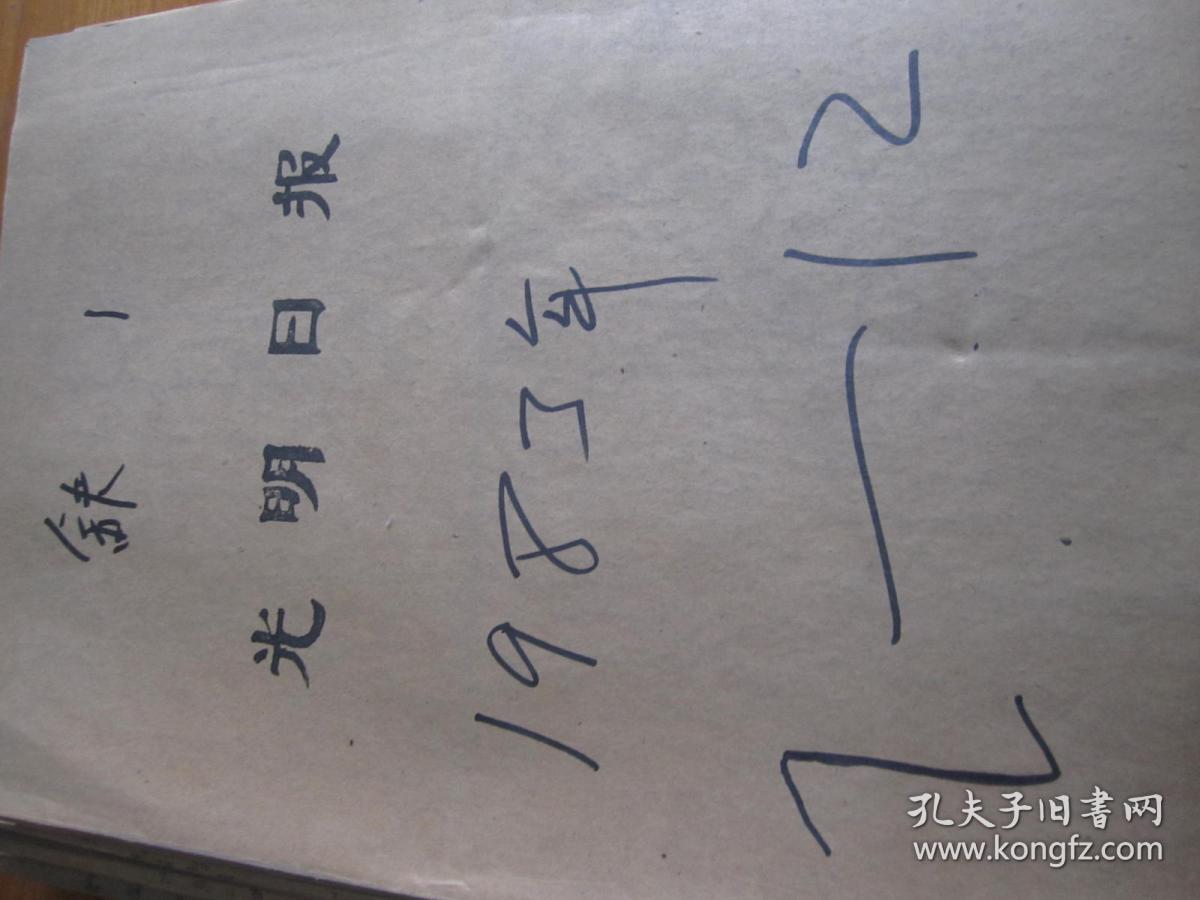 缺 1
光明日报
1983年
2—12
孔夫子旧書网
www.kongfz.com